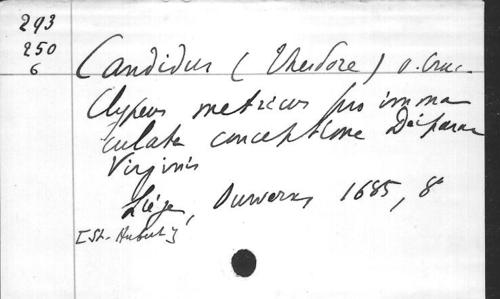 293
250
6
Candidus (Theodore) o. Cruc.
Clypeus metricus pro imma
culata conceptione Deiparae
Virginis
Liége, Ouwerx, 1685, 8°
[St-Hubert]